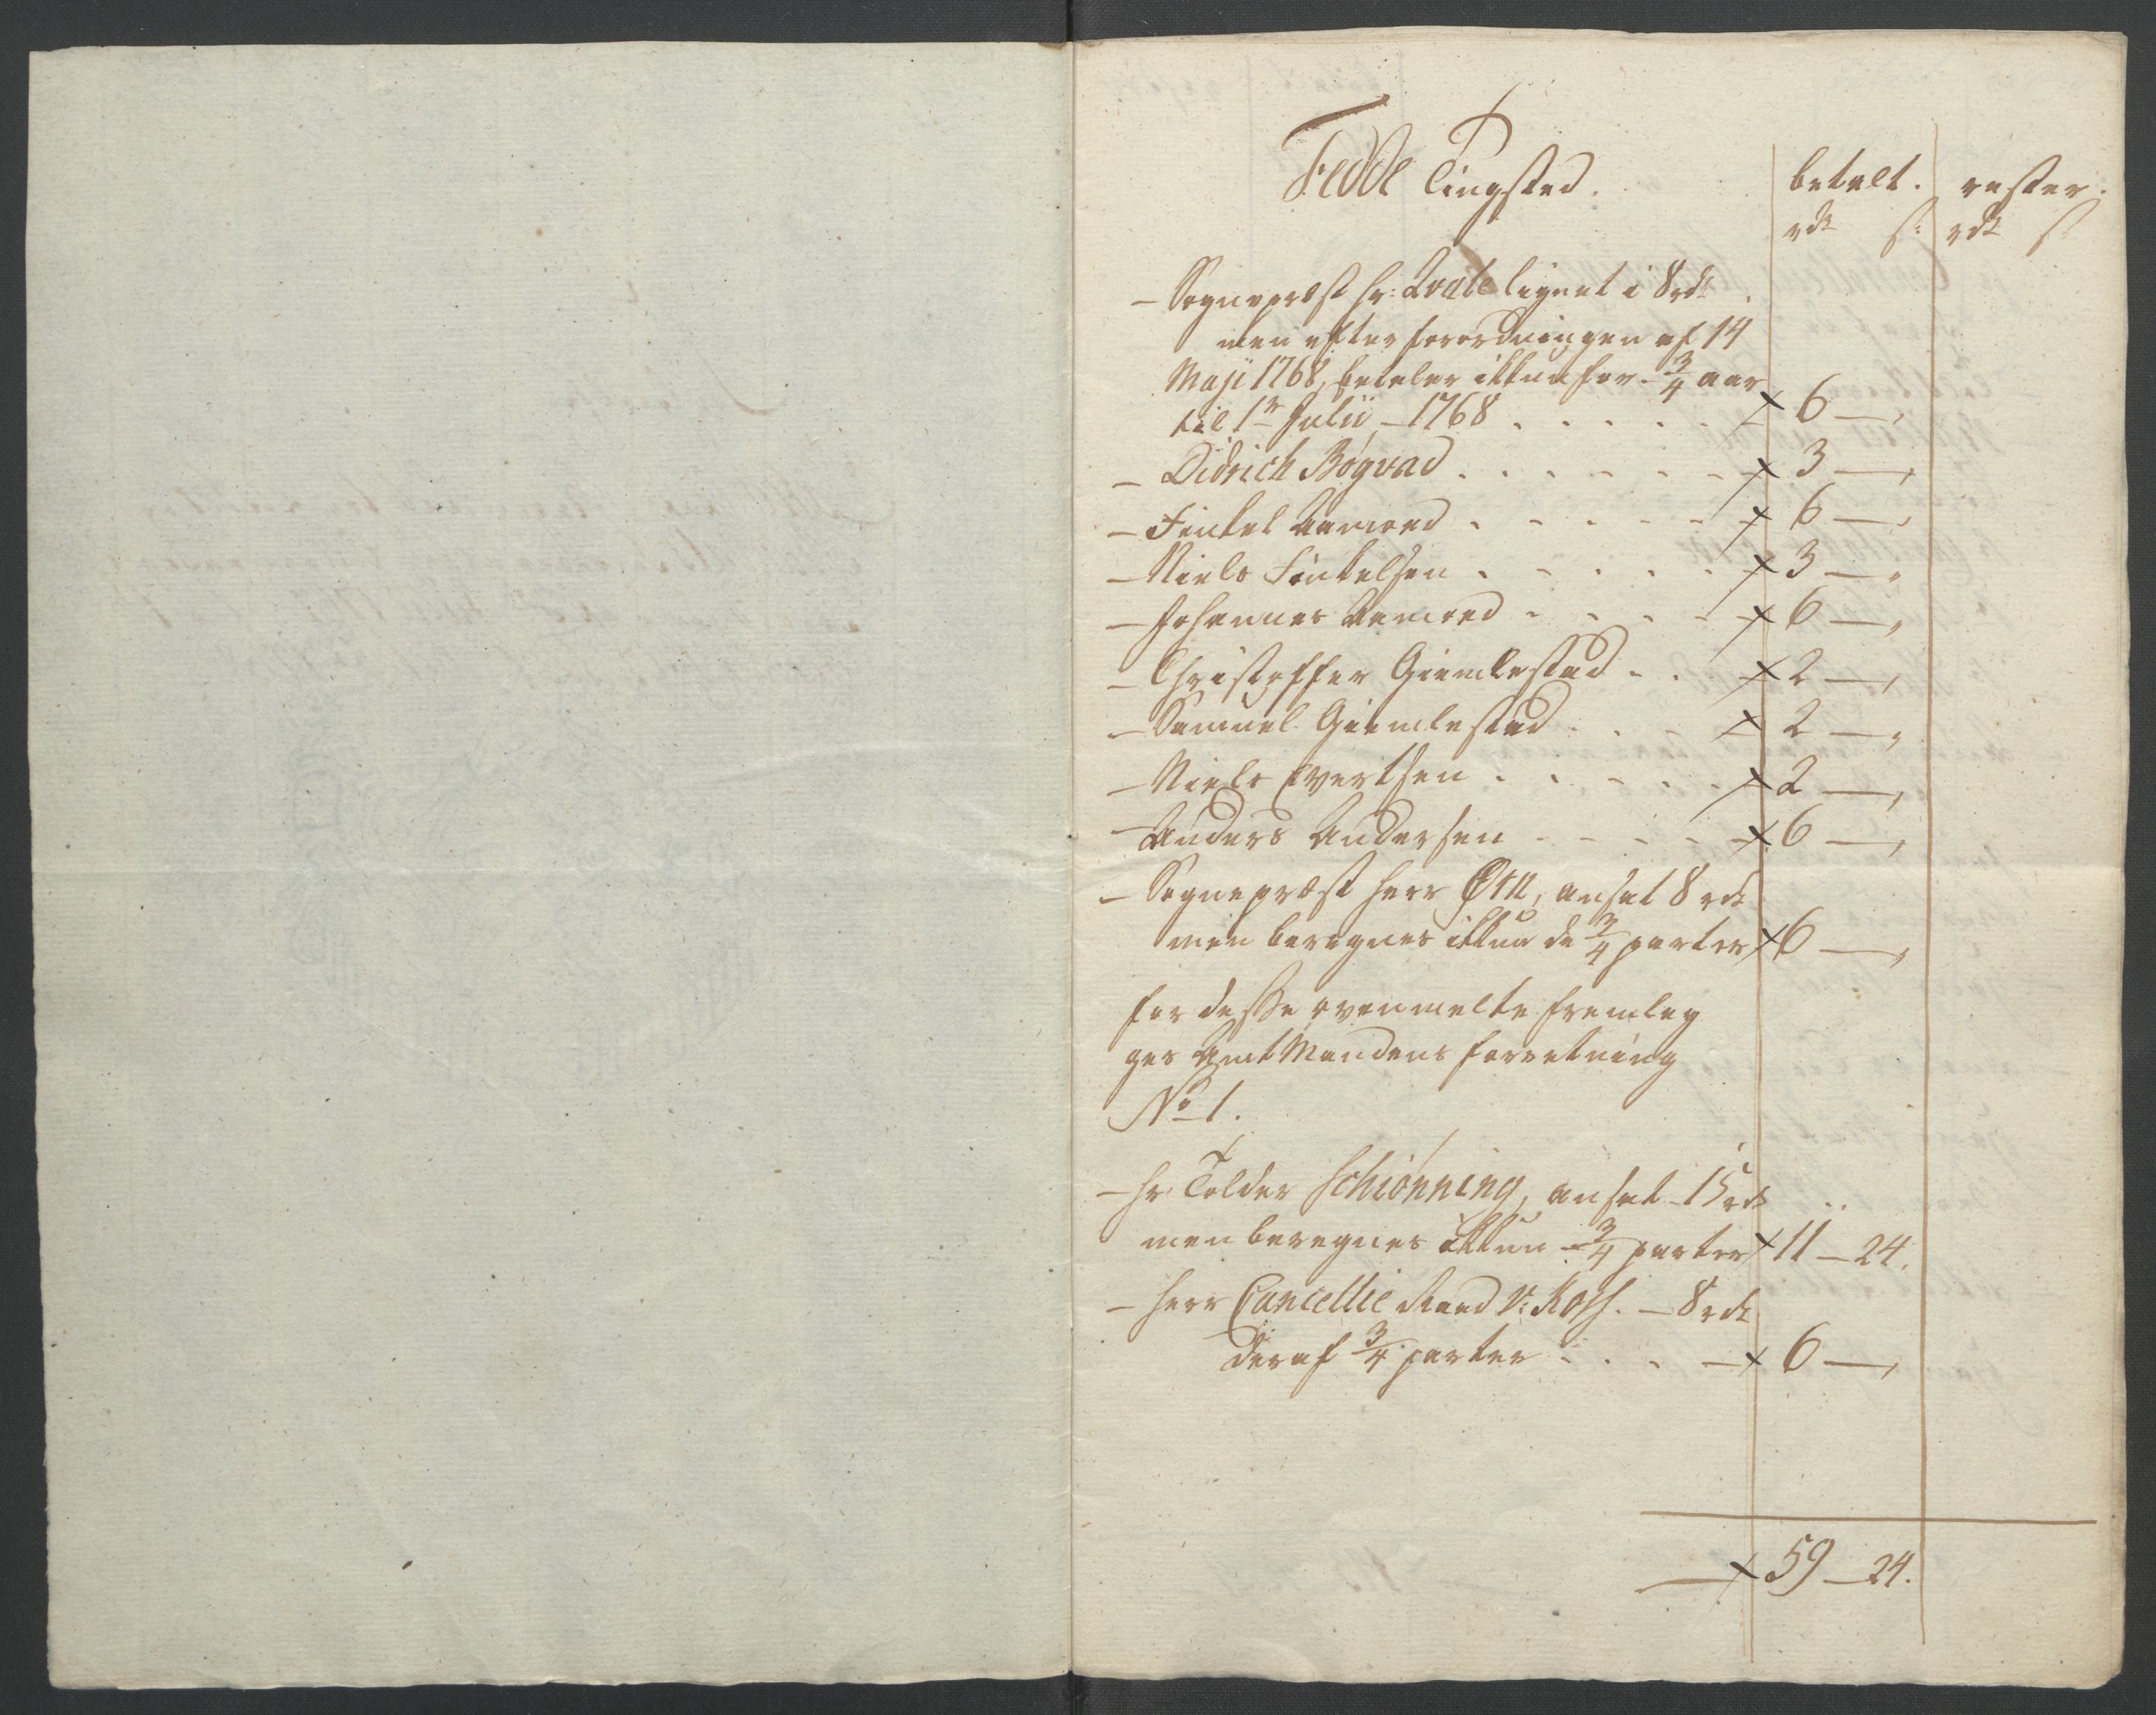 Fedde Tingsted. betalt. rester.
rdr s: rdr s
– Sogneprest hr: Qvale lignet i 8 rdr
men efter forordningen af 14
Maji 1768, betaler ikkun for 3/4 aar
til 1te Julii – 1768 . . . . . 6 – ,
– Didrich Bøgvad . . . . . . 3 – ,
– Tintel Aamoed . . . . . 6 – ,
– Niels Tintelsen . . . . . 3 – ,
– Johannes Aamoed . . . . 6 – ,
– Christoffer Giemlestad . . 2 – ,
– Samuel Giemlestad . . . 2 – ,
– Niels Evertsen . . . . . 2 – ,
– Anders Andersen . . . . . 6 – ,
– Sognepræst herr Ørn, ansat 8 rdr
men beregnes ikkun de 3/4 parter 6 – ,
for desse ovenmelte fremleg
ges AmtMandens forretning
No 1.
– hr: Tolder Schiønning, ansat 15 rdr
men beregnes ikkun 3/4 parter 11 – 24.
– herr Cancellie Raad V: Koss. – 8 rdr
deraf 3/4 parter . . . 6 – ,
59 – 24.